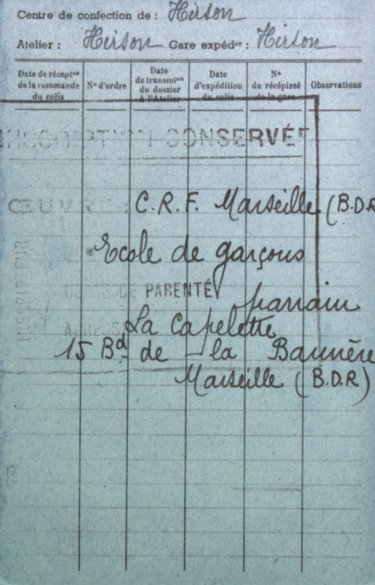 Centre de confection de : Hirson
Atelier : Hirson Gare expédre : Hirson
Date de récepton de la commande du colis
N° d'ordre
Date de transmion du dossier à l'Atelier
Date d'expédition du colis
N° du récépissé de la gare
Observations
INSCRIPTION CONSERVÉE
ŒUVRE : C.R.F. Marseille (B.D.R
Ecole de garçons
DE PARENTÉ parrain
La Capelette
15 Bd de la Barrière
Marseille (B.D.R)